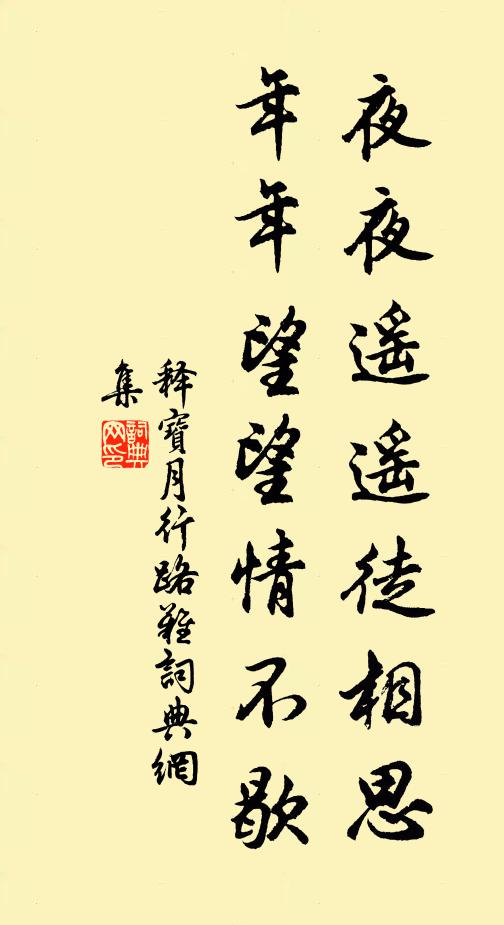 夜夜遥遥徒相思
年年望望情不歇
释寶月行路难詞典網
集
詞典
网印